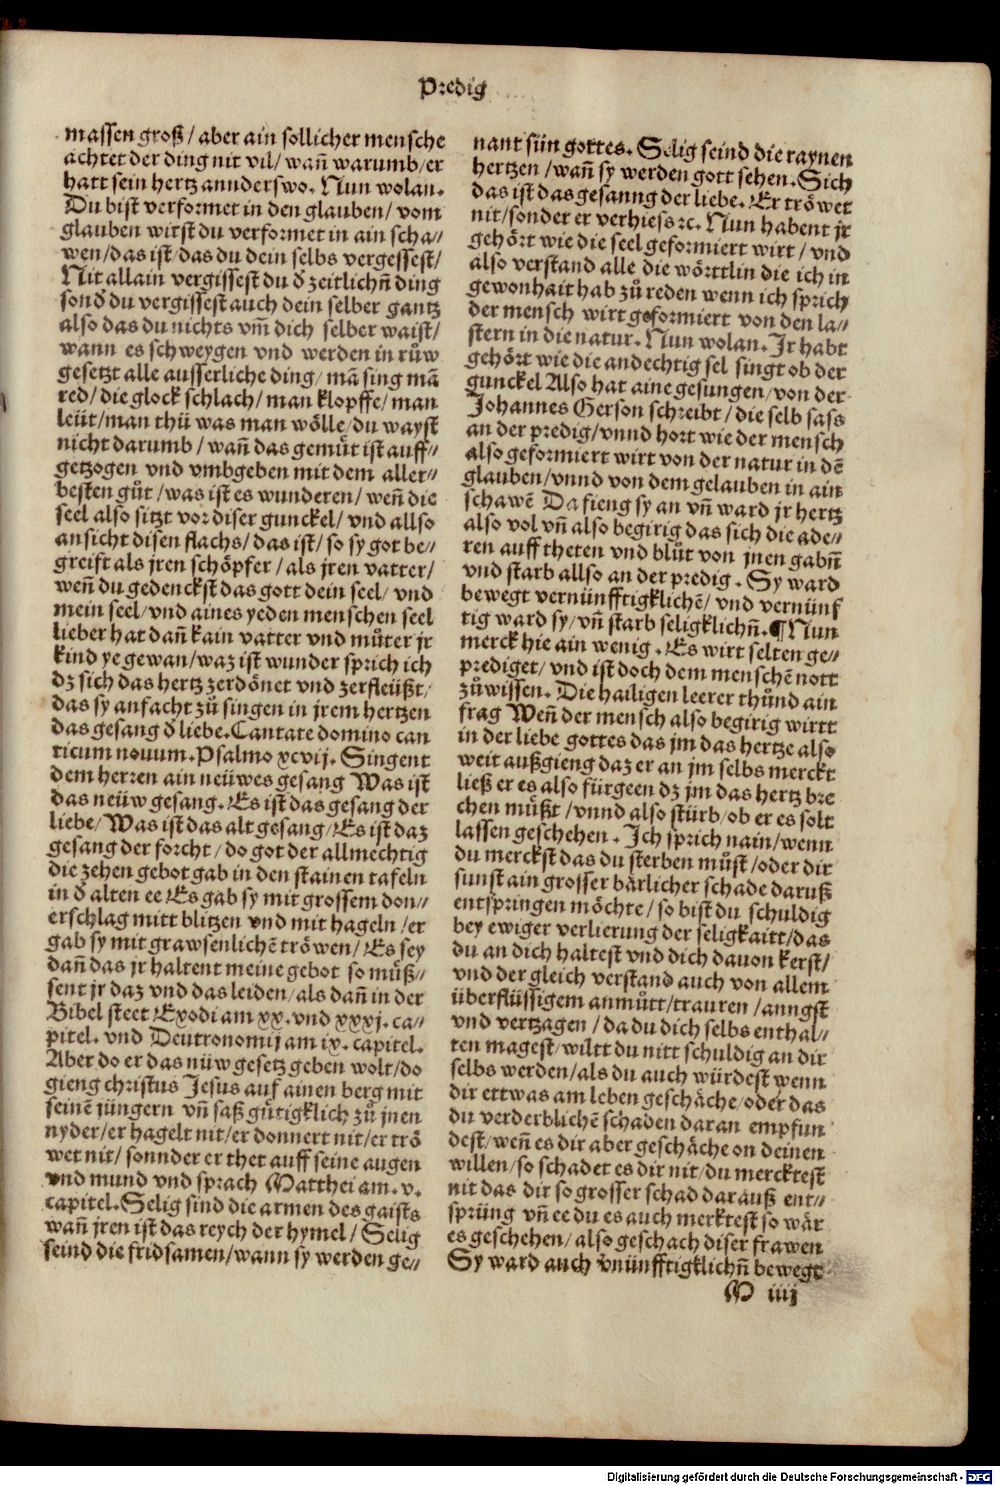 Predig
massen groß / aber ain sollicher mensche
achtet der ding nit vil / wañ warumb / er
hatt sein hertz annderswo. Nun wolan.
Du bist verformet in den glauben / vom
glauben wirst du verformet in ain scha⸗
wen / das ist / das du dein selbs vergessest /
Nit allain vergissest du đ zeitlichñ ding
sonđ du vergissest auch dein selber gantz
also das du nichts vm̃ dich selber waist /
wann es schweygen vnd werden in růw
gesetzt alle ausserliche ding / mã sing mã
red / die glock schlach / man klopffe / man
leüt / man thü was man wölle / du wayst
nicht darumb / wañ das gemüt ist auff⸗
getzogen vnd vmbgeben mit dem aller⸗
besten gůt / was ist es wunderen / weñ die
seel also sitzt vor diser gunckel / vnd allso
ansicht disen flachs / das ist / so sy got be⸗
greift als jren schöpfer / als jren vatter /
weñ du gedenckst das gott dein seel / vnd
mein seel / vnd aines yeden menschen seel
lieber hat dañ kain vatter vnd můter jr
kind ye gewan / waz ist wunder sprich ich
dz sich das hertz zerdönet vnd zerfleüßt /
das sy anfacht zů singen in jrem hertzen
das gesang đ liebe. Cantate domino can
ticum nouum. Psalmo xcvij. Singent
dem herren ain neüwes gesang Was ist
das neüw gesang. Es ist das gesang der
liebe / Was ist das alt gesang / Es ist daz
gesang der forcht / do got der allmechtig
die zehen gebot gab in den stainen tafeln
in đ alten ee Es gab sy mit grossem don⸗
erschlag mitt blitzen vnd mit hageln / er
gab sy mit grawsenlichẽ tröwen / Es sey
dañ das jr haltent meine gebot so müß⸗
sent jr daz vnd das leiden / als dañ in der
Bibel steet Exodi am xx. vnd xxxj. ca⸗
pitel. vnd Deutronomij am ix. capitel.
Aber do er das nüw gesetz geben wolt / do
gieng christus Jesus auf ainen berg mit
seinẽ jüngern vñ saß gütigklich zů jnen
nyder / er hagelt nit / er donnert nit / er trö
wet nit / sonnder er thet auff seine augen
vnd mund vnd sprach Matthei am. v.
capitel. Selig sind die armen des gaists
wañ jren ist das reych der hymel / Selig
seind die fridsamen / wann sy werden ge⸗
nant sün gottes. Selig seind die raynen
hertzen / wañ sy werden gott sehen. Sich
das ist das gesanng der liebe. Er tröwet
nit / sonder er verhiess ꝛc. Nun habent jr
gehört wie die seel geformiert wirt / vnd
also verstand alle die wörttlin die ich in
gewonhait hab zů reden wenn ich sprich
der mensch wirt geformiert von den la⸗
stern in die natur. Nun wolan. Jr habt
gehört wie die andechtig sel singt ob der
gunckel Also hat aine gesungen / von der
Johannes Gerson schreibt / die selb sass
an der predig / vnnd hort wie der mensch
also geformiert wirt von der natur in dẽ
glauben / vnnd von dem gelauben in ain
schawẽ Da fieng sy an vñ ward jr hertz
also vol vñ also begirig das sich die ade⸗
ren auff theten vnd blůt von jnen gabñ
vnd starb allso an der predig. Sy ward
bewegt vernünfftigklichẽ / vnd vernünf
tig ward sy / vñ starb seligklichñ. ¶ Nun
merck hie ain wenig. Es wirt selten ge⸗
prediget / vnd ist doch dem menschẽ nott
zůwissen. Die hailigen leerer thůnd ain
frag Weñ der mensch also begirig wirtt
in der liebe gottes das jm das hertze also
weit außgieng daz er an jm selbs merckt
ließ er es also fürgeen dz jm das hertz bre
chen müßt / vnnd also stürb / ob er es solt
lassen geschehen. Ich sprich nain / wenn
du merckst das du sterben můst / oder dir
sunst ain grosser bärlicher schade daruß
entspringen möchte / so bist du schuldig
bey ewiger verlierung der seligkaitt / das
du an dich haltest vnd dich dauon kerst /
vnd der gleich verstand auch von allem
überflüssigem anmůtt / trauren / anngst
vnd vertzagen / da du dich selbs enthal⸗
ten magest / wiltt du nitt schuldig an dir
selbs werden / als du auch würdest wenn
dir ettwas am leben geschäche / oder das
du verderblichẽ schaden daran empfun
dest / weñ es dir aber geschäche on deinen
willen / so schadet es dir nit / du mercktest
nit das dir so grosser schad darauß ent⸗
sprüng vñ ee du es auch merktest so wär
es geschehen / also geschach diser frawen
Sy ward auch v̈nünfftigklichñ bewegt
M iiij
Digitalisierung gefördert durch die Deutsche Forschungsgemeinschaft - DFG